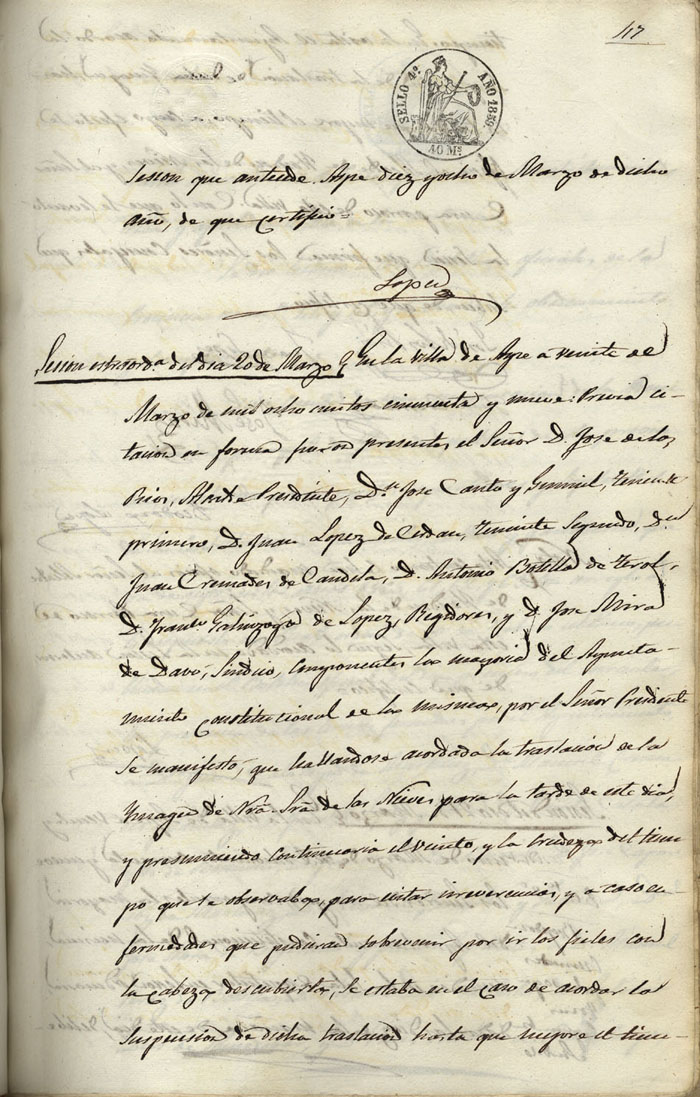 117
SELLO 4º AÑO 1859
40 Ms
sesion que antecede. Aspe diez y ocho de Marzo de dicho
año, de que certifico=
Lopez
Sesion estraordª del dia 20 de Marzo } En la Villa de Aspe a veinte de
Marzo de mil ocho cientos cincuenta y nueve: Previa ci-
tacion en forma presentes el Señor D. Jose de los
Rios, Alcalde Presidente, Dn. Jose Canto y Gumiel, Teniente
primero, D. Juan Lopez de Cerdan, Teniente Segundo, Dn
Juan Cremades de Candela, D. Antonio Botella de Terol,
D. Franco. Galinzoga de Lopez, Regidores, y D. Jose Mira
de Davó, Sindico, componentes la mayoria del Ayunta-
miento Constitucional de la misma, por el Señor Presidente
se manifestó, que hallandose acordada la traslacion de la
Ymagen de Nrâ. Srâ de las Nieves para la tarde de este dia,
y presumiendo continuaria el viento, y la crudeza del tiem-
po que se observaba, para evitar irreverencias, y acaso en-
fermedades que pudieran sobrevenir por ir los fieles con
la cabeza descubierta, se estaba en el caso de acordar la
suspension de dicha traslacion hasta que mejore el tiem-